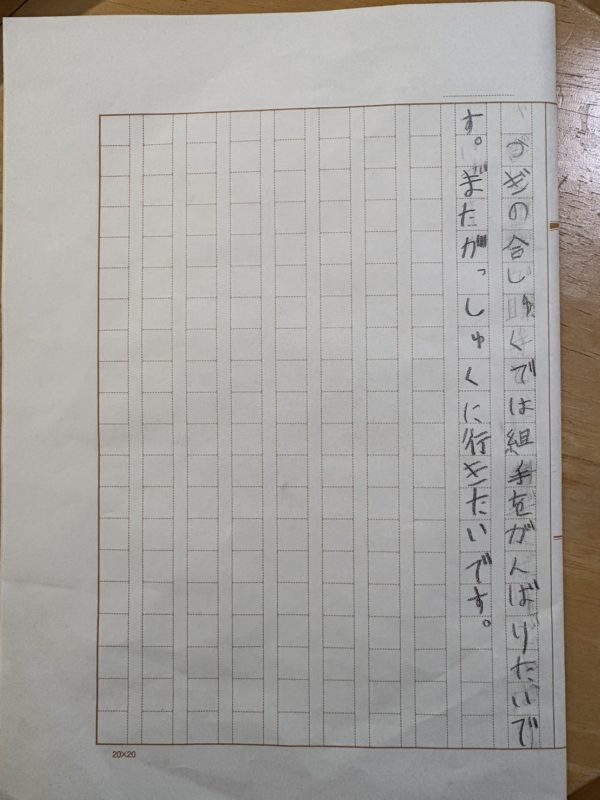 つぎの合しゅくでは組手をがんばりたいで
す。またがっしゅくに行きたいです。
20×20